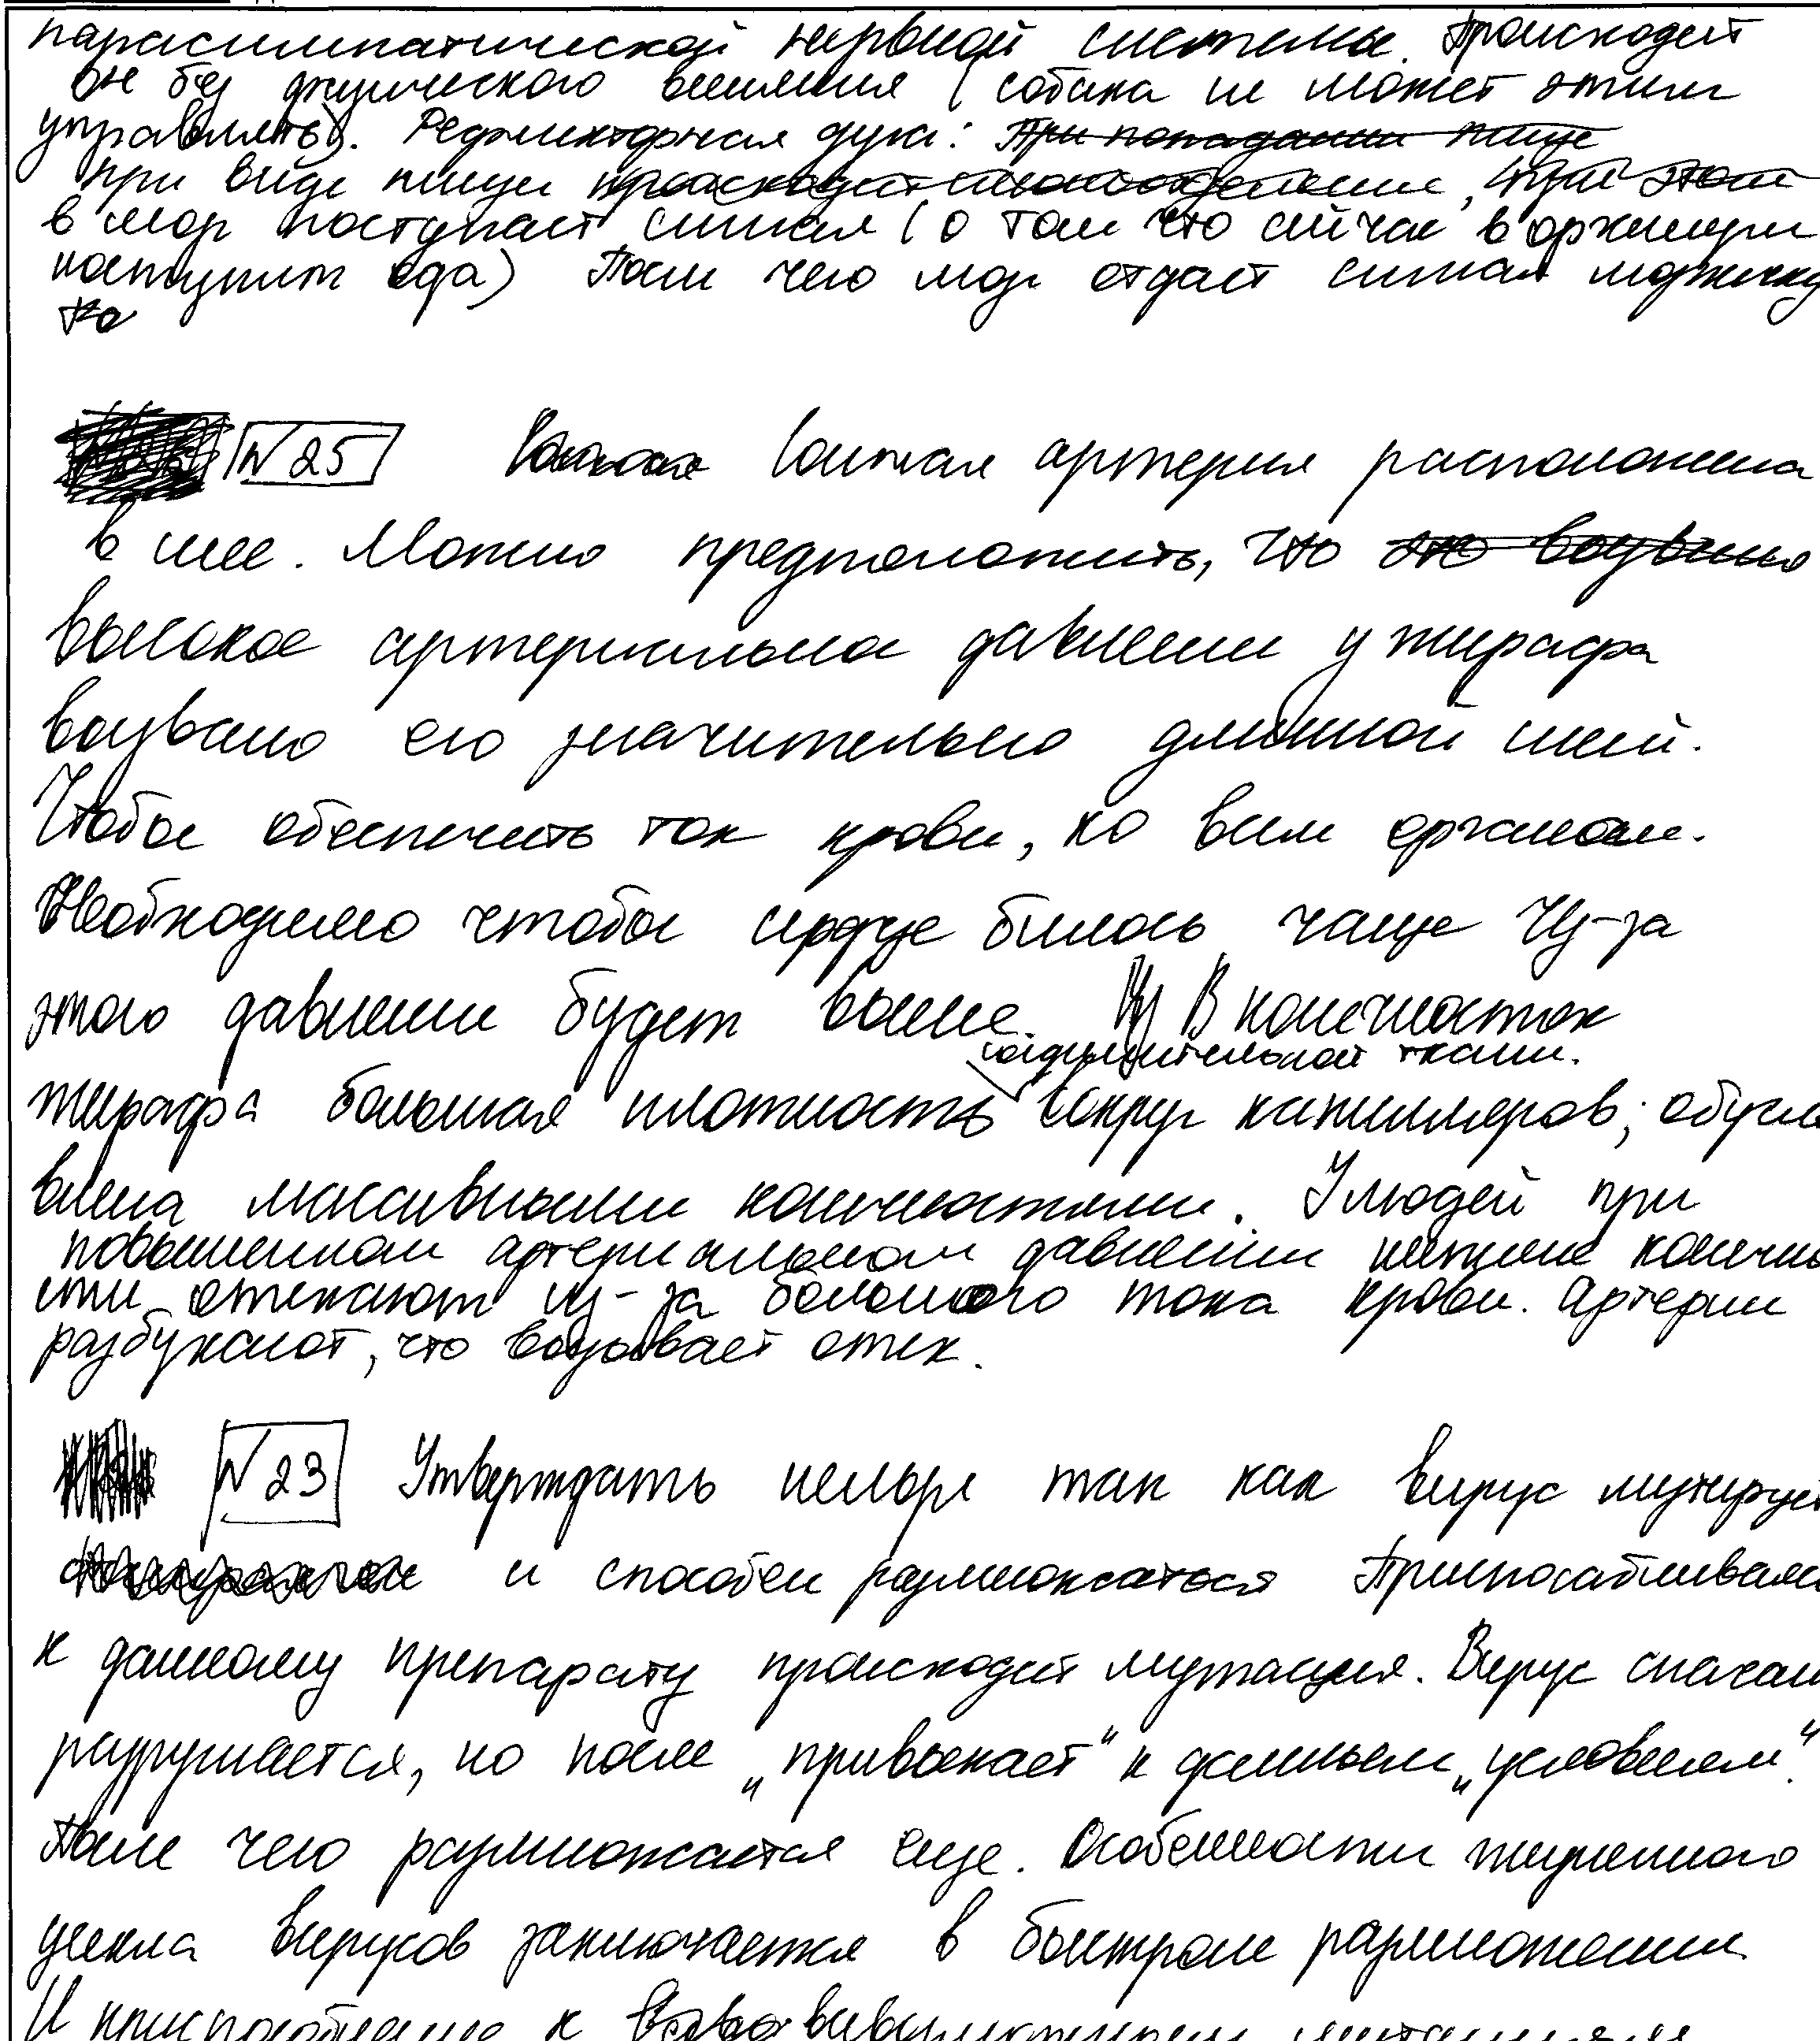 парасимпатической нервной системы. Происходит
он без физического влияния (собака не может этим
управлять). Рефлекторная дуга: При попадании пище
при виде пищи происходит слюноотделение, При этом
в мозг поступает сигнал (о том что сейчас в организм
поступит еда) После чего мозг отдает сигнал
№ 25 Сонная Сонная артерия расположена
в шее. Можно предположить, что это вызвано
высокое артериальное давление у жирафа
вызвано его значительно длинной шеей.
Чтобы обеспечить ток крови, ко всем органам.
Необходимо чтобы сердце билось чаще Из-за
этого давление будет выше. В конечностях
соединительной ткани.
жирафа большая плотность вокруг капилляров, обусло
влена массивными конечностями. У людей при
повышенном артериальном давлении нижние конечно
сти отекают из-за большого тока крови. Артерии
разбухают, что вызывает отек.
№ 23 Утверждать нельзя так как вирус мутирует
и способен размножаться Приспосабливаясь
к данному препарату происходит мутация. Вирус сначала
разрушается, но после „привыкает" к данным „условиям".
После чего размножается еще. Особенности жизненного
цикла вирусов заключается в быстром размножении
И к